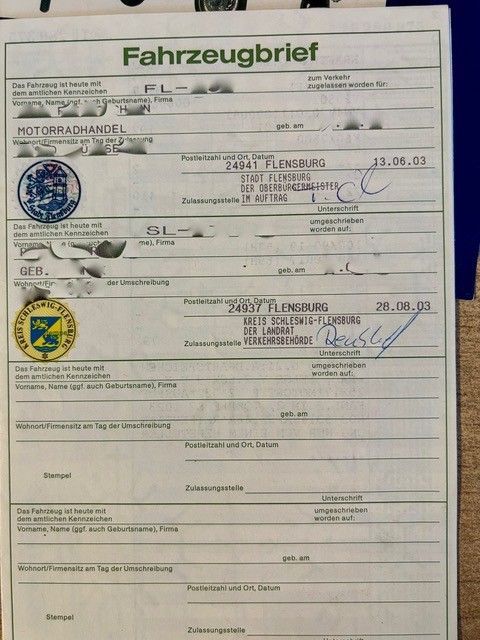 Fahrzeugbrief
Das Fahrzeug ist heute mit
dem amtlichen Kennzeichen
FL-
zum Verkehr
zugelassen worden für:
Vorname, Name (ggf. auch Geburtsname), Firma
MOTORRADHANDEL
geb. am
Wohnort/Firmensitz am Tag der Zulassung
Postleitzahl und Ort, Datum
24941 FLENSBURG 13.06.03
STADT FLENSBURG
DER OBERBURGERMEISTER
Zulassungsstelle IM AUFTRAG
Unterschrift
Stadt Flensburg
Das Fahrzeug ist heute mit
dem amtlichen Kennzeichen
SL-
umgeschrieben
worden auf:
Vorname, me), Firma
GEB.
geb. am
Wohnort/Fir der Umschreibung
Postleitzahl und Ort, Datum
24937 FLENSBURG 28.08.03
KREIS SCHLESWIG-FLENSBURG
KREIS SCHLESWIG-FLENSBURG
DER LANDRAT
Zulassungsstelle VERKEHRSBEHÖRDE
Unterschrift
Das Fahrzeug ist heute mit
dem amtlichen Kennzeichen
umgeschrieben
worden auf:
Vorname, Name (ggf. auch Geburtsname), Firma
geb. am
Wohnort/Firmensitz am Tag der Umschreibung
Postleitzahl und Ort, Datum
Stempel
Zulassungsstelle
Unterschrift
Das Fahrzeug ist heute mit
dem amtlichen Kennzeichen
umgeschrieben
worden auf:
Vorname, Name (ggf. auch Geburtsname), Firma
geb. am
Wohnort/Firmensitz am Tag der Umschreibung
Postleitzahl und Ort, Datum
Stempel
Zulassungsstelle
Unterschrift